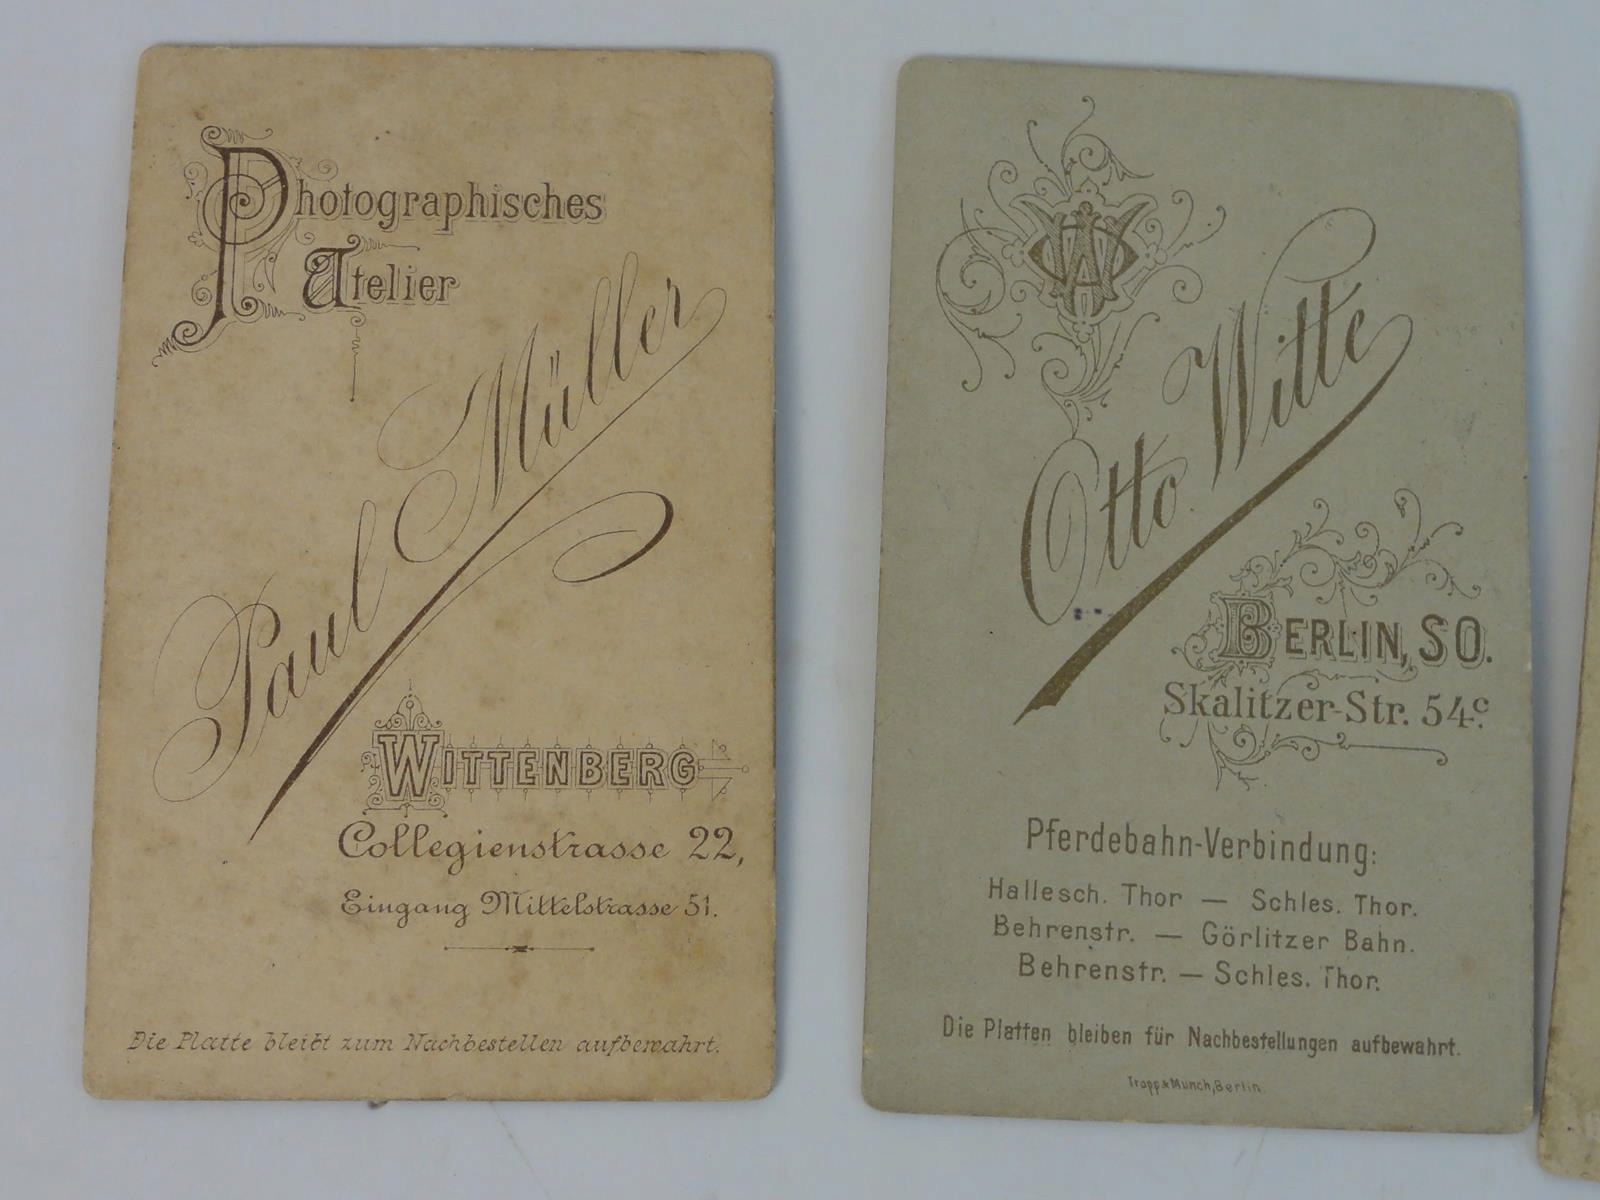 Photographisches
Atelier
Paul Müller
WITTENBERG
Collegienstrasse 22,
Eingang Mittelstrasse 51.
Die Platte bleibt zum Nachbestellen aufbewahrt.
OW
Otto Witte
BERLIN, SO.
Skalitzer-Str. 54c.
Pferdebahn-Verbindung:
Hallesch. Thor — Schles. Thor.
Behrenstr. — Görlitzer Bahn.
Behrenstr. — Schles. Thor.
Die Platten bleiben für Nachbestellungen aufbewahrt.
Trapp & Münch, Berlin